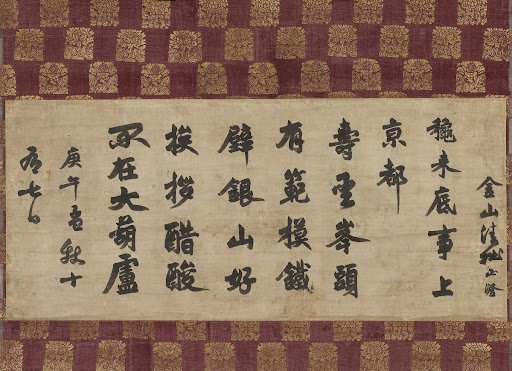 金山清拙正澄
穐来底事上
京都
壽聖峯頭
有範模鐵
壁銀山好
挨拶醋酸
不在大葫蘆
庚午孟秋十
有七日